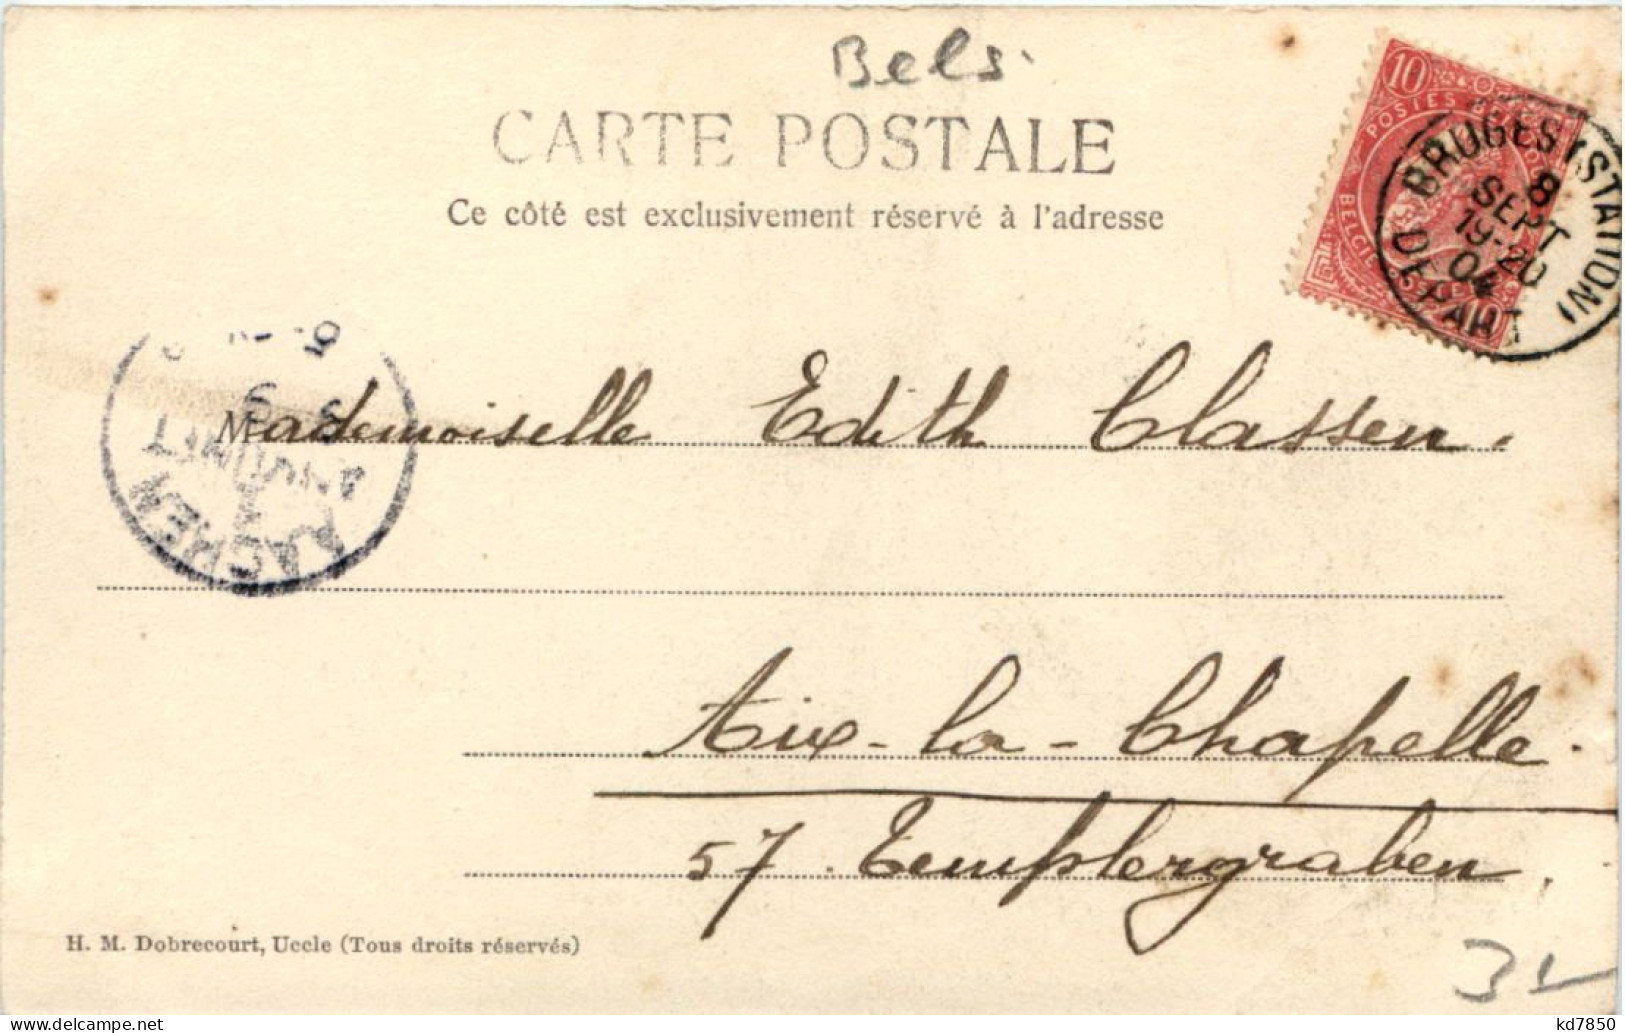 Bels.
CARTE POSTALE
Ce côté est exclusivement réservé à l'adresse
10
POSTES
BELGIE
BRUGES (STATION)
8
SEPT
19-20
04
DEPART
AACHEN
1
9 9
Mademoiselle Edith Classen.
Aix-la-Chapelle.
57. Templergraben,
H. M. Dobrecourt, Uccle (Tous droits réservés)
kd7850